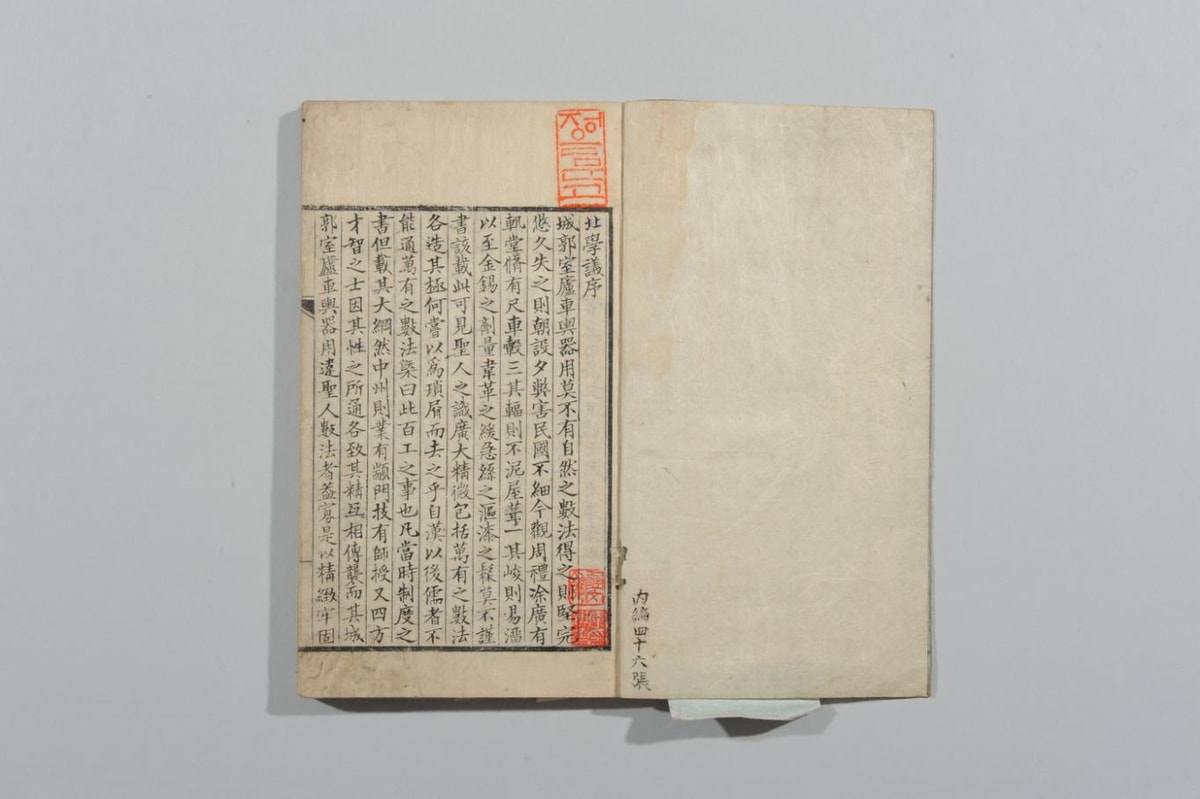 内編四十六張
北學議序
城郭室廬車輿器用莫不有自然之數法得之則堅完
悠久失之則朝設夕弊害民國不細今觀周禮涂廣有
軌堂脩有尺車轂三其輻則不泥屋葺一其峻則易溜
以至金錫之劑量韋革之緩急絲之漚漆之髹莫不謹
書該載此可見聖人之識廣大精微包括萬有之數法
各造其極何嘗以爲瑣屑而去之乎自漢以後儒者不
能通萬有之數法槩曰此百工之事也凡當時制度之
書但載其大綱然中州則業有顓門技有師授又四方
才智之士因其性之所通各致其精互相傳襲而其城
郭室廬車輿器用違聖人數法者蓋寡是以精緻牢固